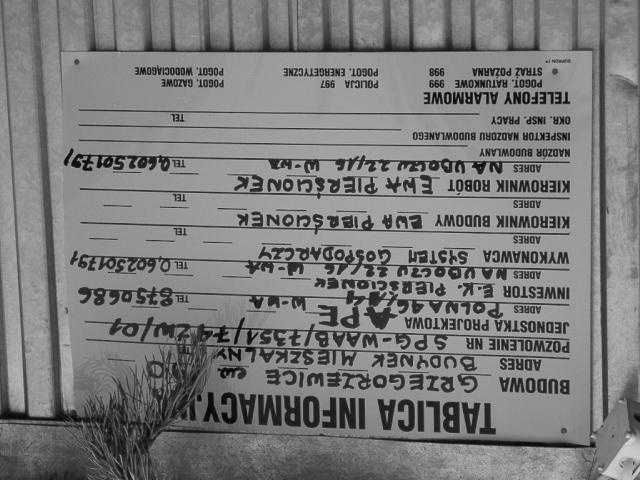 TABLICA INFORMACYJ
BUDOWA GRZEGORZEWICE
ADRES BUDYNEK MIESZKALNY
POZWOLENIE NR SPG-WAAB/7351/742W/01
JEDNOSTKA PROJEKTOWA APE
ADRES POLNA 46/ W-WA TEL. 8750686
INWESTOR E.K. PIERŚCIONEK
ADRES NA UBOCZU 22/16 W-WA TEL. 0,602501791
WYKONAWCA SYSTEM GOSPODARCZY
ADRES TEL.
KIEROWNIK BUDOWY EWA PIERŚCIONEK
ADRES TEL.
KIEROWNIK ROBÓT EWA PIERŚCIONEK
ADRES NA UBOCZU 22/16 W-WA TEL. 0,602501791
NADZÓR BUDOWLANY
INSPEKTOR NADZORU BUDOWLANEGO
OKR. INSP. PRACY TEL.
TELEFONY ALARMOWE
POGOT. RATUNKOWE 999 POLICJA 997 POGOT. GAZOWE
STRAŻ POŻARNA 998 POGOT. ENERGETYCZNE POGOT. WODOCIĄGOWE